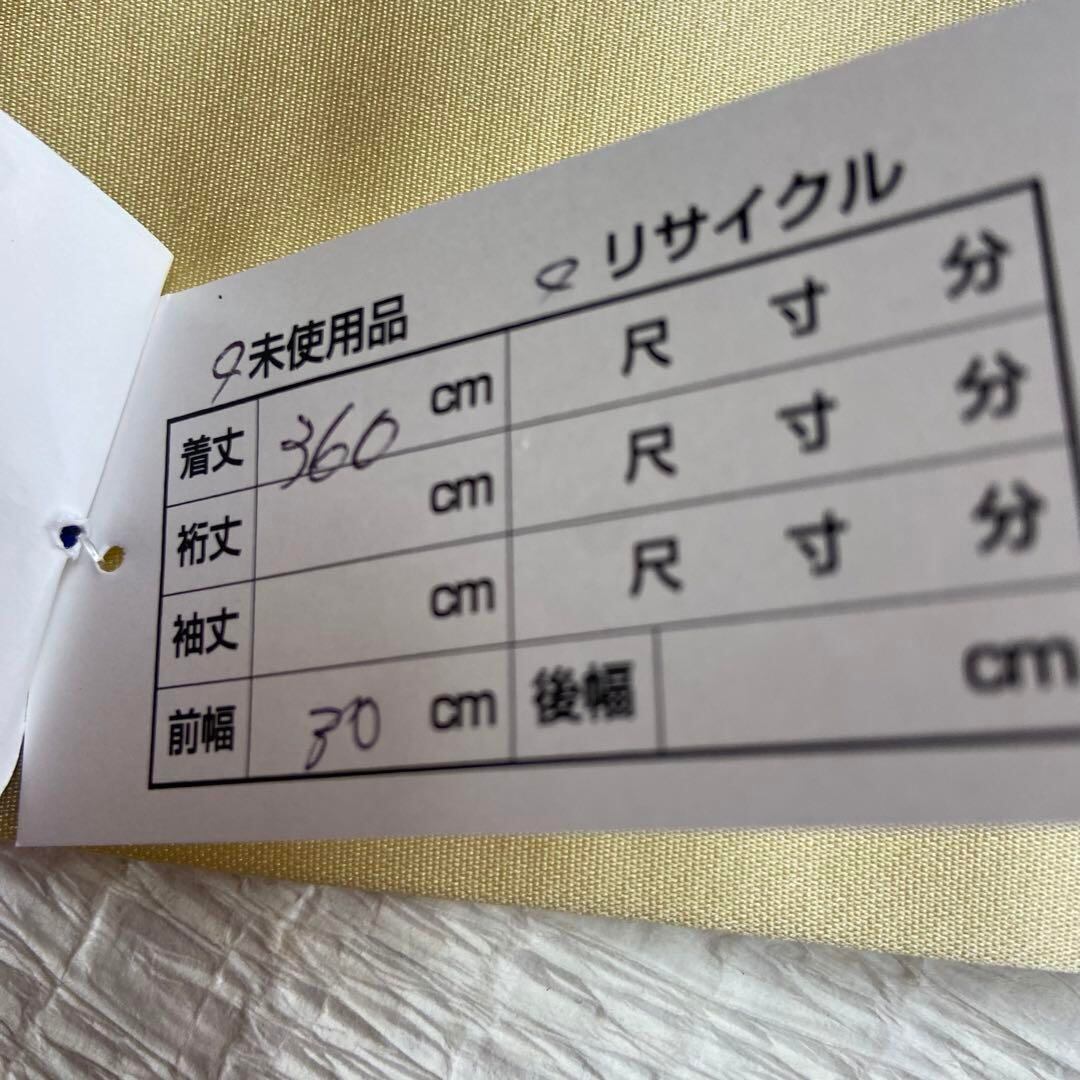 未使用品 リサイクル
着丈 360 cm 尺 寸 分
裄丈 cm 尺 寸 分
袖丈 cm 尺 寸 分
前幅 30 cm 後幅 cm